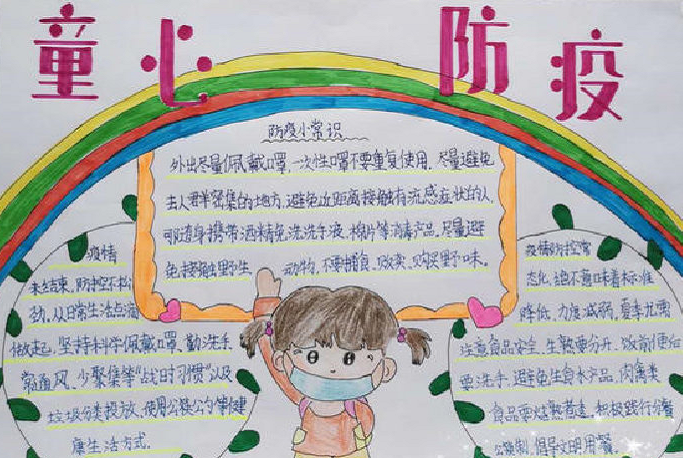 童心 防疫
防疫小常识
外出尽量佩戴口罩、一次性口罩不要重复使用。尽量避免
去人群密集的地方,避免近距离接触有流感症状的人,
可随身携带酒精免洗洗手液、棉片等消毒产品,尽量避
免接触野生动物,不要捕食、贩卖、购买野味。
疫情
未结束,防控不松
劲,从日常生活点滴
做起,坚持科学佩戴口罩、勤洗手
常通风、少聚集等"战时习惯"以及
垃圾分类投放、使用公筷公勺等健
康生活方式.
疫情防控常
态化,迫不意味着标准
降低、力度减弱,夏季尤需
注意食品安全,生熟要分开,饭前便后
要洗手,避免生食水产品,肉禽类
食品要烧熟煮透,积极践行分餐
公筷制,倡导文明用餐。